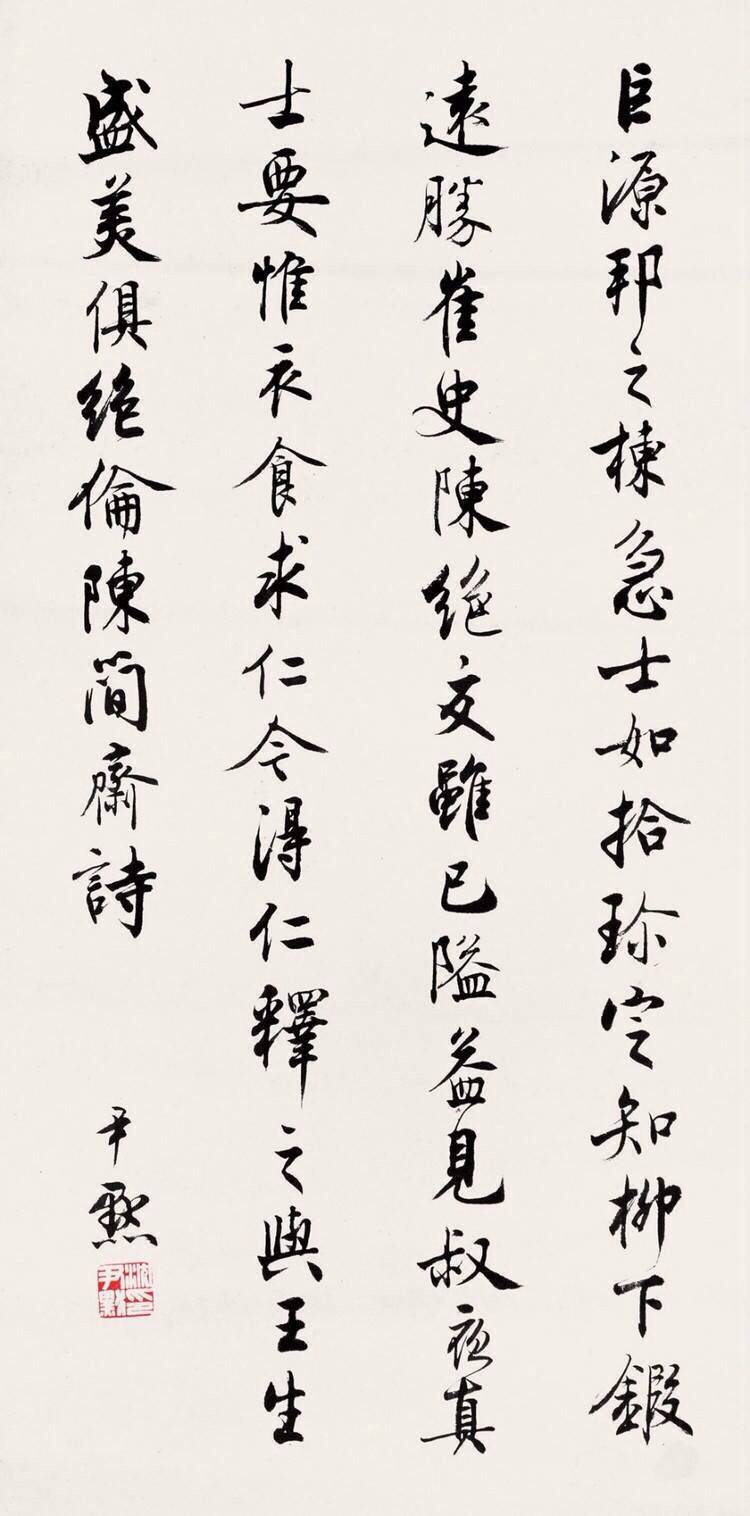 巨源邦之棟急士如拾珍定知柳下鍛
遠勝崔史陳絶交雖已隘益見叔夜真
士要惟衣食求仁今得仁釋之與王生
盛美俱絶倫陳簡齋詩
尹默
沈尹默印